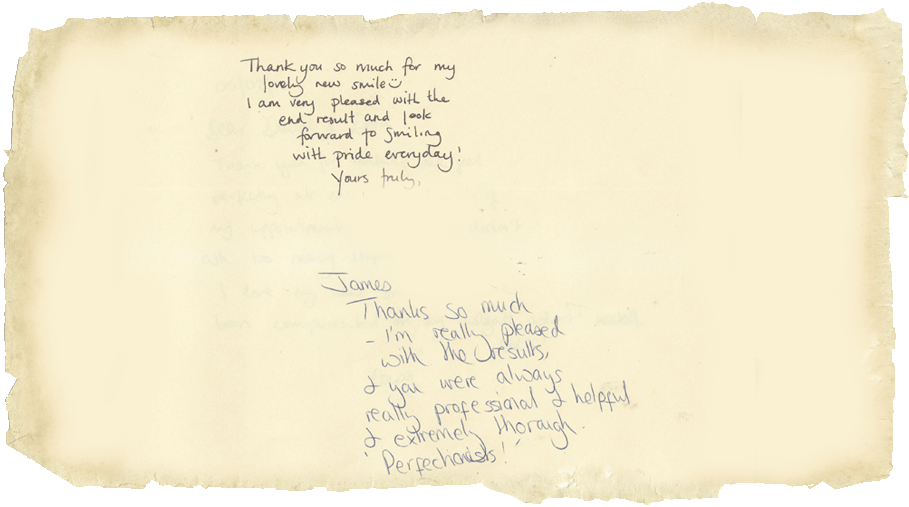 Thank you so much for my
lovely new smile
I am very pleased with the
end result and look
forward to smiling
with pride everyday!
Yours truly,
James
Thanks so much
- I'm really pleased
with the results,
& you were always
really professional & helpful
& extremely thorough.
'Perfectionists!'